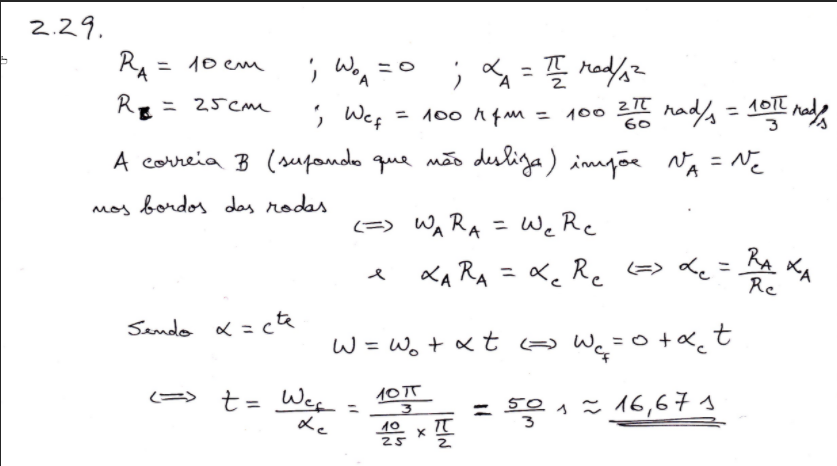 2.29.
R_A = 10 cm ; ω_{0_A} = 0 ; α_A = π/2 rad/s²
R_C = 25 cm ; ω_{c_f} = 100 rpm = 100 2π/60 rad/s = 10π/3 rad/s
A correia B (supondo que não desliza) impõe v_A = v_c
nos bordos das rodas
<=> ω_A R_A = ω_c R_c
e α_A R_A = α_c R_c <=> α_c = R_A/R_c α_A
Sendo α = c^{te}
ω = ω_0 + α t <=> ω_{c_f} = 0 + α_c t
<=> t = ω_{c_f}/α_c = (10π/3)/(10/25 × π/2) = 50/3 s ≈ 16,67 s